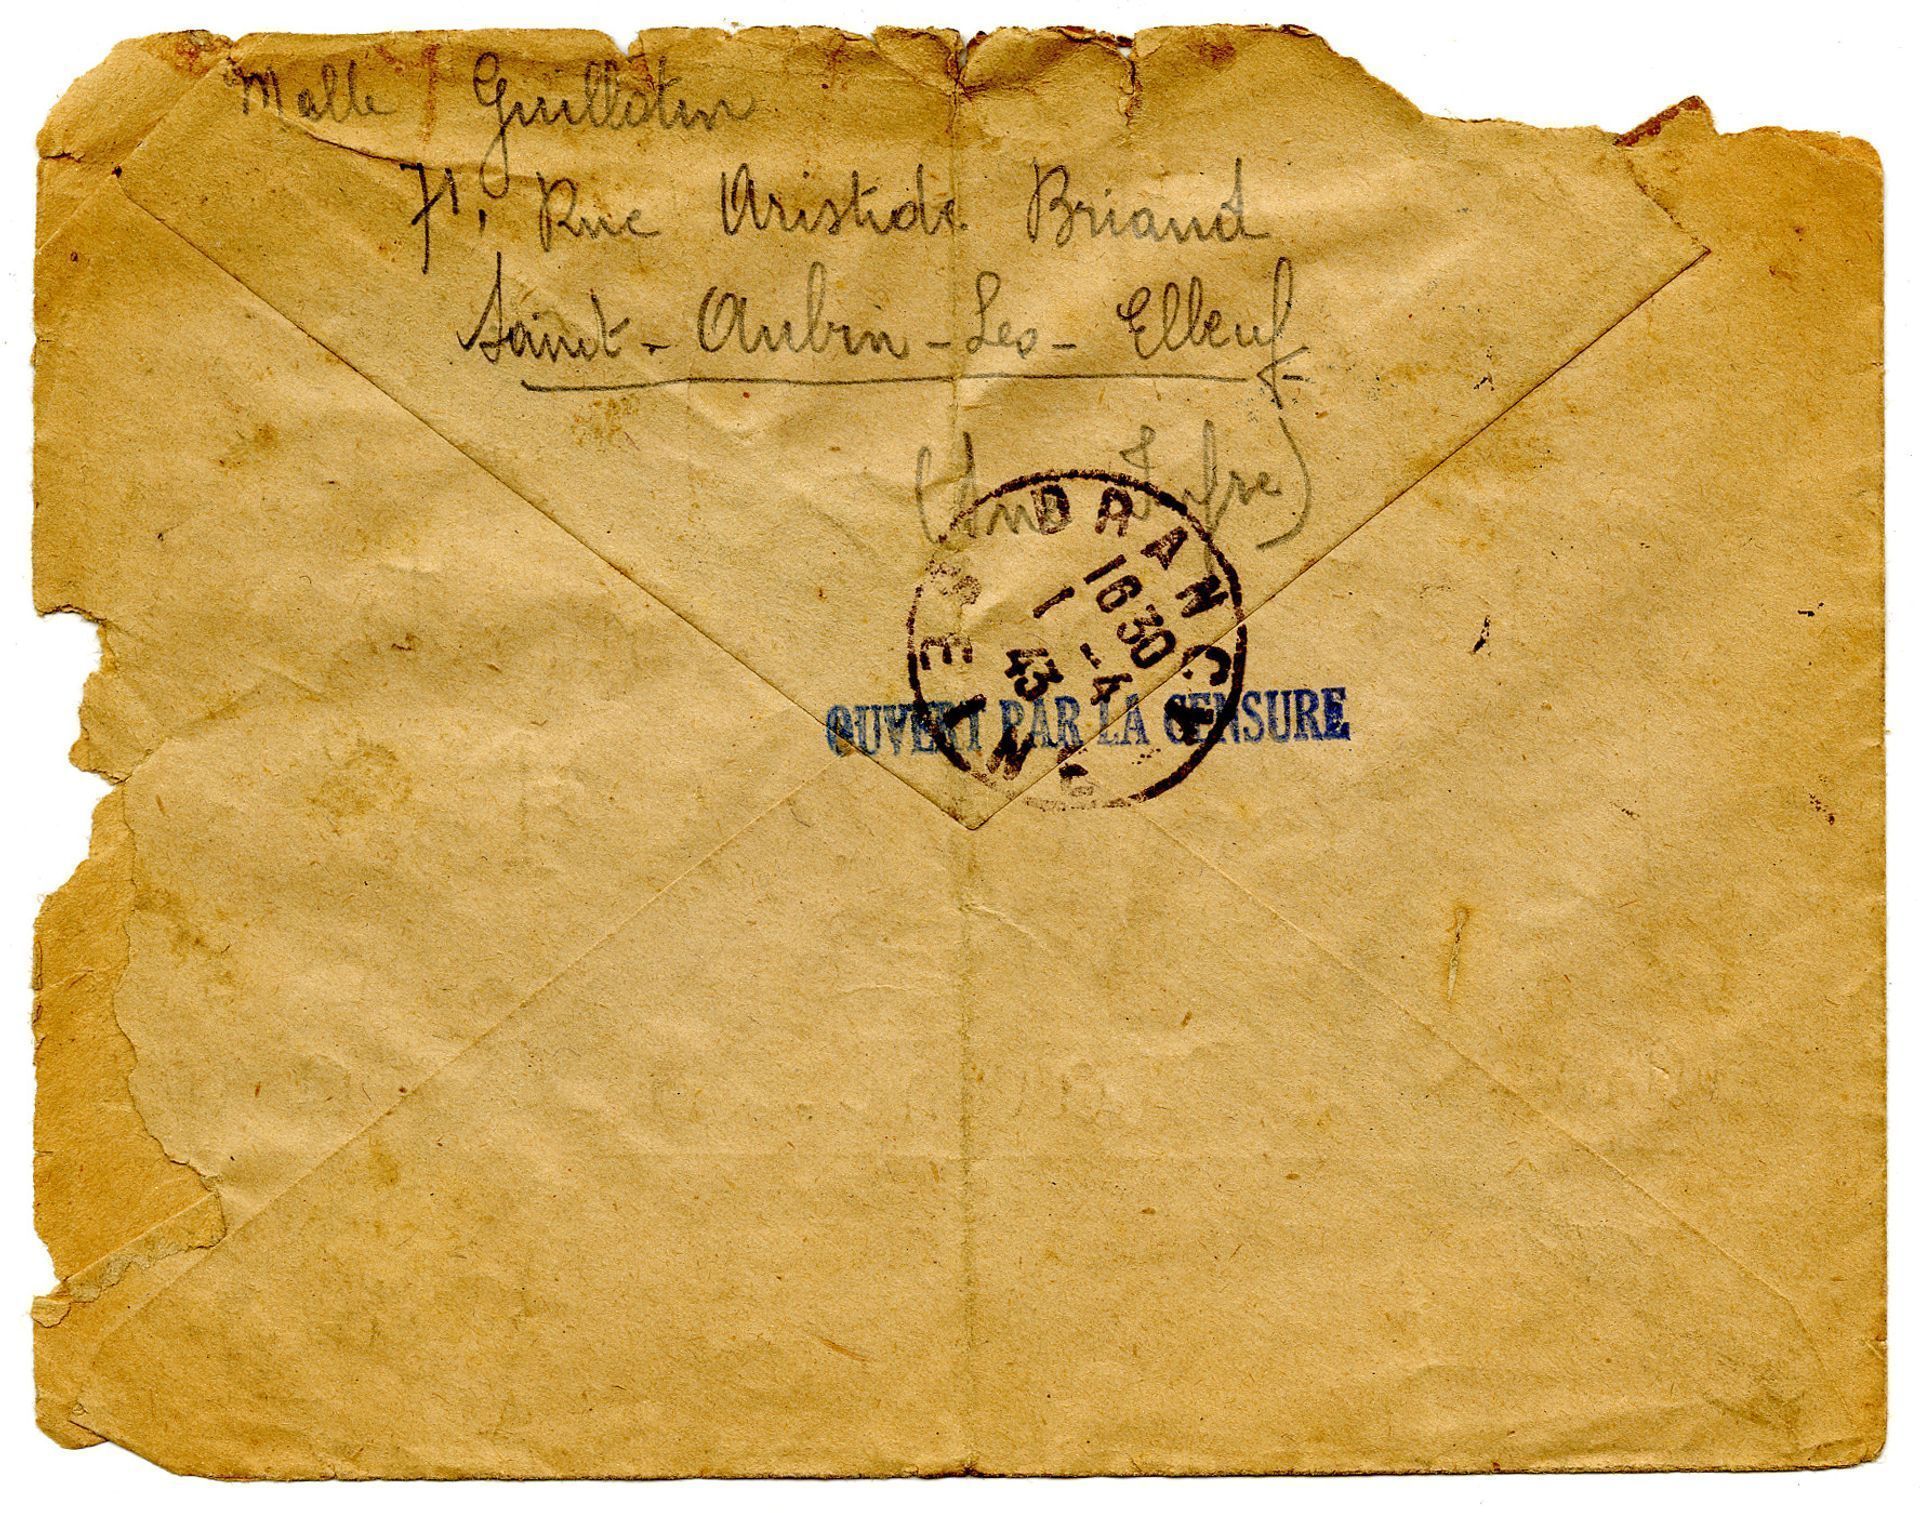 Melle Guillotin
71, Rue Aristide Briand
Saint-Aubin-Les-Elbeuf
(Sne Infre)
DRANCY
16 30
1 -4
43
SEINE
OUVERT PAR LA CENSURE